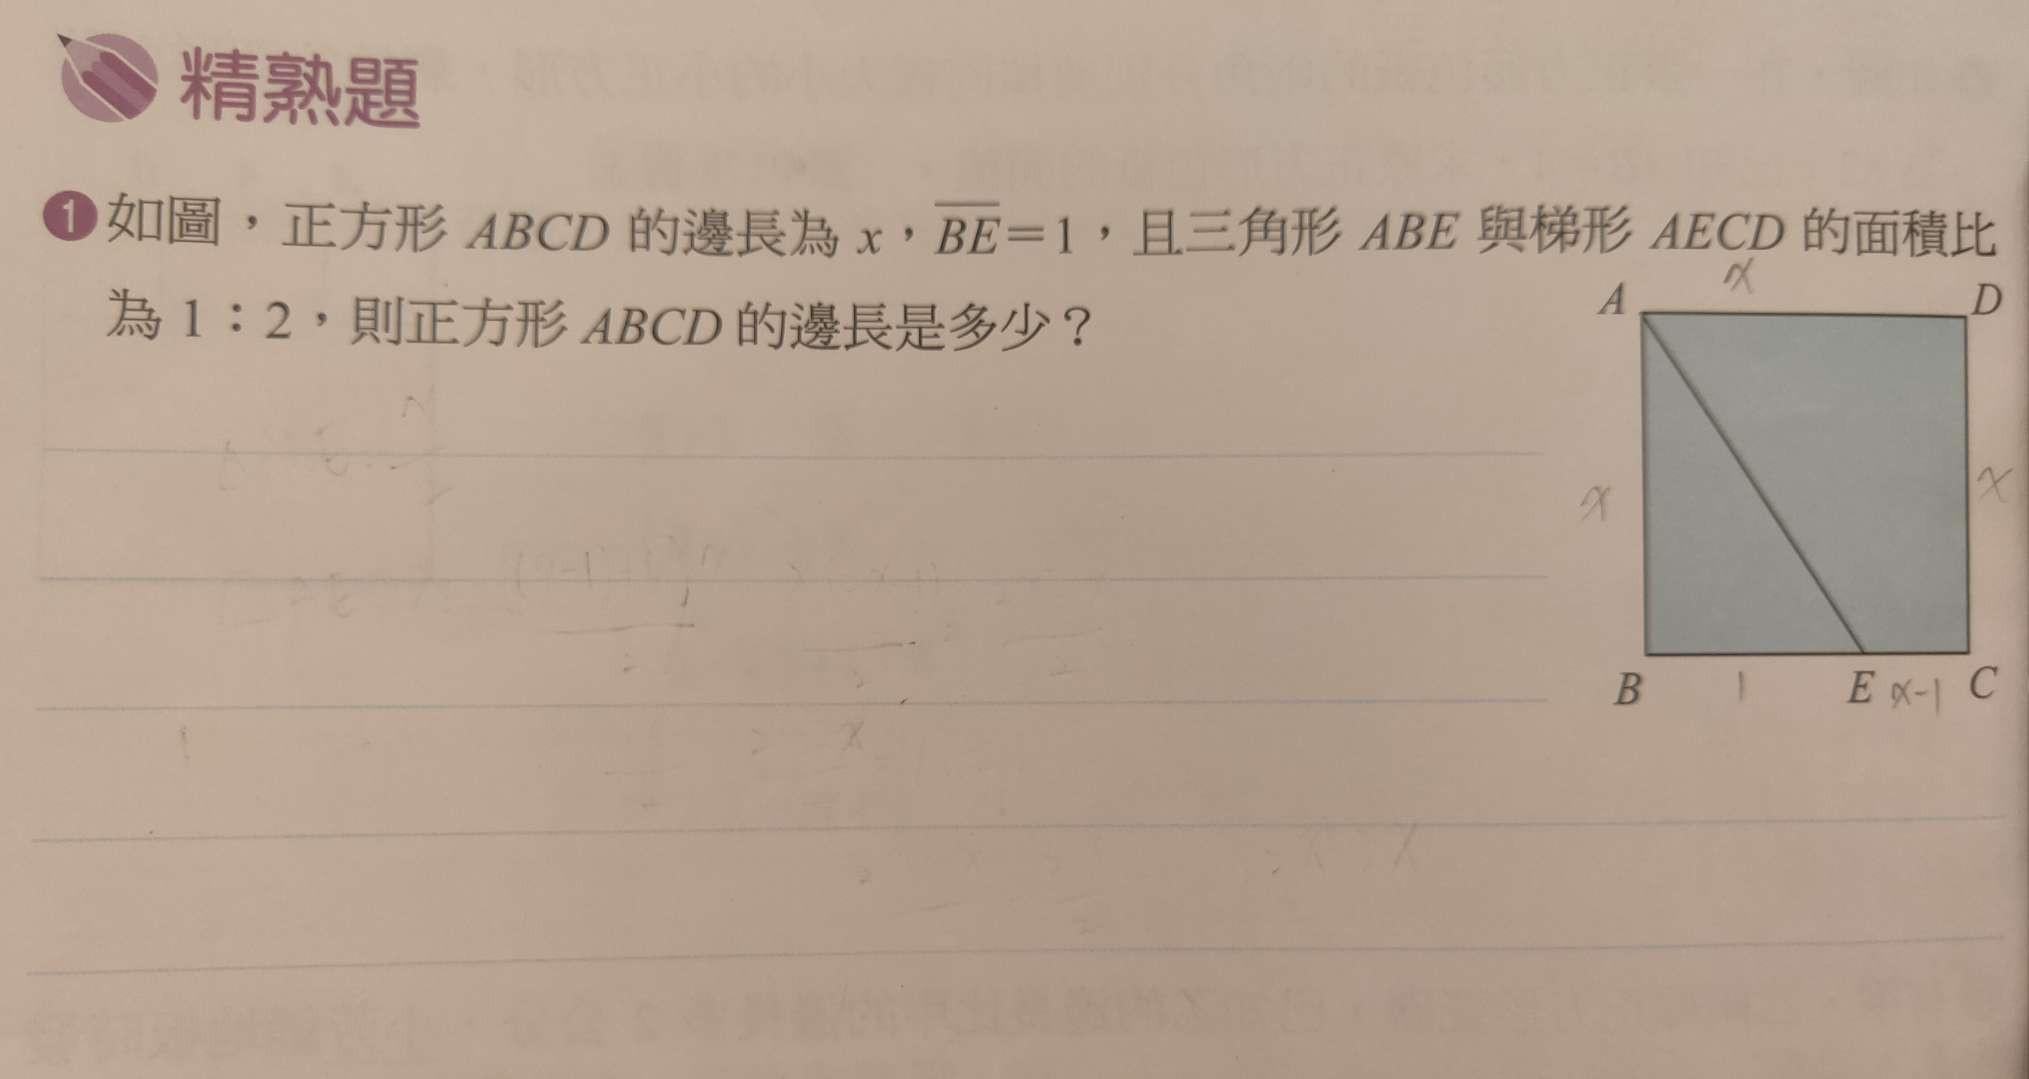 精熟題
1 如圖，正方形 ABCD 的邊長為 x，BE＝1，且三角形 ABE 與梯形 AECD 的面積比
為 1：2，則正方形 ABCD 的邊長是多少？
x
A D
x x
B 1 E x-1 C